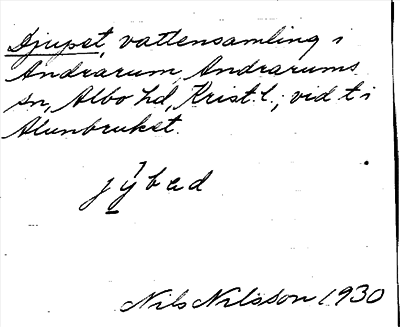 Djupet, vattensamling i
Andrarum, Andrarums
sn, Albo hd, Krist. l., vid t i
Alunbruket.
Nils Nilsson 1930